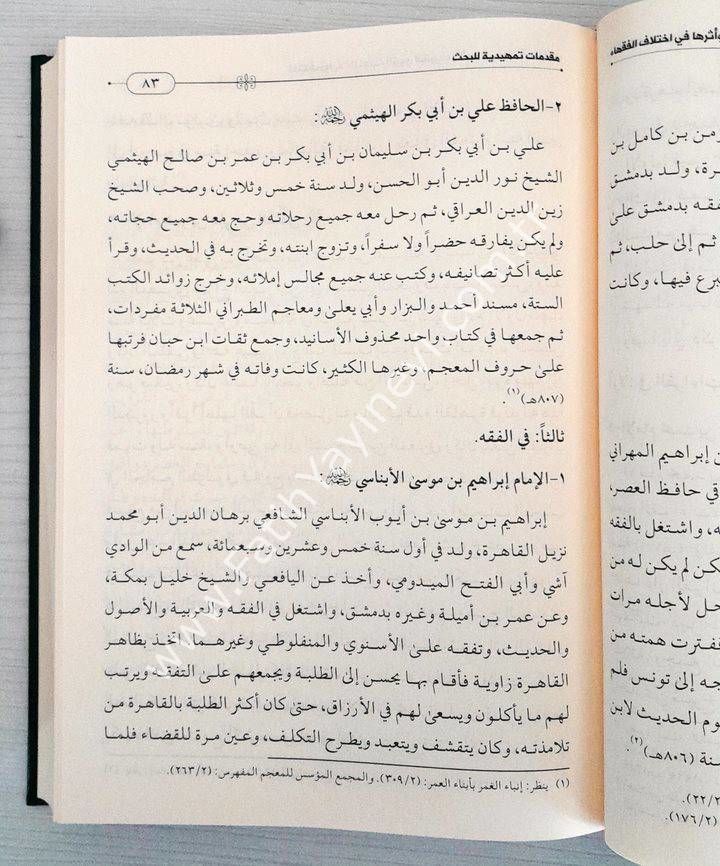 وأثرها في اختلاف الفقهاء
من بن كامل بن
رة، ولد بدمشق
فقه بدمشق على
ثم إلى حلب، ثم
برع فيها، وكانت
ن إبراهيم المهراني
قي حافظ العصر،
ه، واشتغل بالفقه
كن لم يكن له من
حل لأجله مرات
فترت همته من
جه إلى تونس فلم
وم الحديث لابن
سنة (٨٠٦هـ)(٢).
٢٢/٢).
(١٧٦/٢).
مقدمات تمهيدية للبحث
٨٣
٢- الحافظ علي بن أبي بكر الهيثمي رحمه الله:
علي بن أبي بكر بن سليمان بن أبي بكر بن عمر بن صالح الهيثمي
الشيخ نور الدين أبو الحسن، ولد سنة خمس وثلاثين، وصحب الشيخ
زين الدين العراقي، ثم رحل معه جميع رحلاته وحج معه جميع حجاته،
ولم يكن يفارقه حضراً ولا سفراً، وتزوج ابنته، وتخرج به في الحديث، وقرأ
عليه أكثر تصانيفه، وكتب عنه جميع مجالس إملائه، وخرج زوائد الكتب
الستة، مسند أحمد والبزار وأبي يعلى ومعاجم الطبراني الثلاثة مفردات،
ثم جمعها في كتاب واحد محذوف الأسانيد، وجمع ثقات ابن حبان فرتبها
على حروف المعجم، وغيرها الكثير، كانت وفاته في شهر رمضان، سنة
(٨٠٧هـ)(١).
ثالثاً: في الفقه.
١- الإمام إبراهيم بن موسى الأبناسي رحمه الله:
إبراهيم بن موسى بن أيوب الأبناسي الشافعي برهان الدين أبو محمد
نزيل القاهرة، ولد في أول سنة خمس وعشرين وسبعمائة، سمع من الوادي
آشي وأبي الفتح الميدومي، وأخذ عن اليافعي والشيخ خليل بمكة،
وعن عمر بن أميلة وغيره بدمشق، واشتغل في الفقه والعربية والأصول
والحديث، وتفقه على الأسنوي والمنفلوطي وغيرهما، اتخذ بظاهر
القاهرة زاوية فأقام بها يحسن إلى الطلبة ويجمعهم على التفقه ويرتب
لهم ما يأكلون ويسعى لهم في الأرزاق، حتى كان أكثر الطلبة بالقاهرة من
تلامذته، وكان يتقشف ويتعبد ويطرح التكلف، وعين مرة للقضاء فلما
(١) ينظر: إنباء الغمر بأبناء العمر: (٣٠٩/٢). والمجمع المؤسس للمعجم المفهرس: (٢٦٣/٢).
www.FatihYayinevi.com.tr